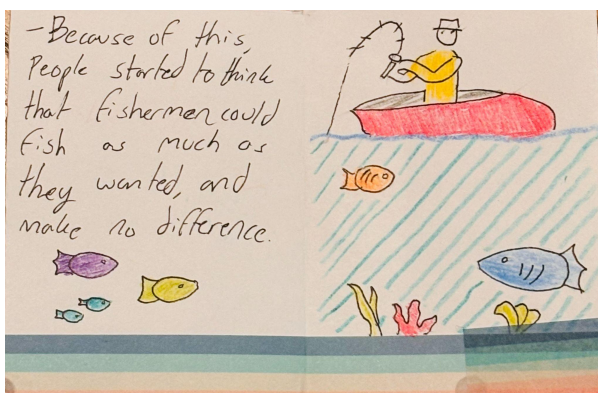 - Because of this,
People started to think
that fishermen could
fish as much as
they wanted, and
make no difference.